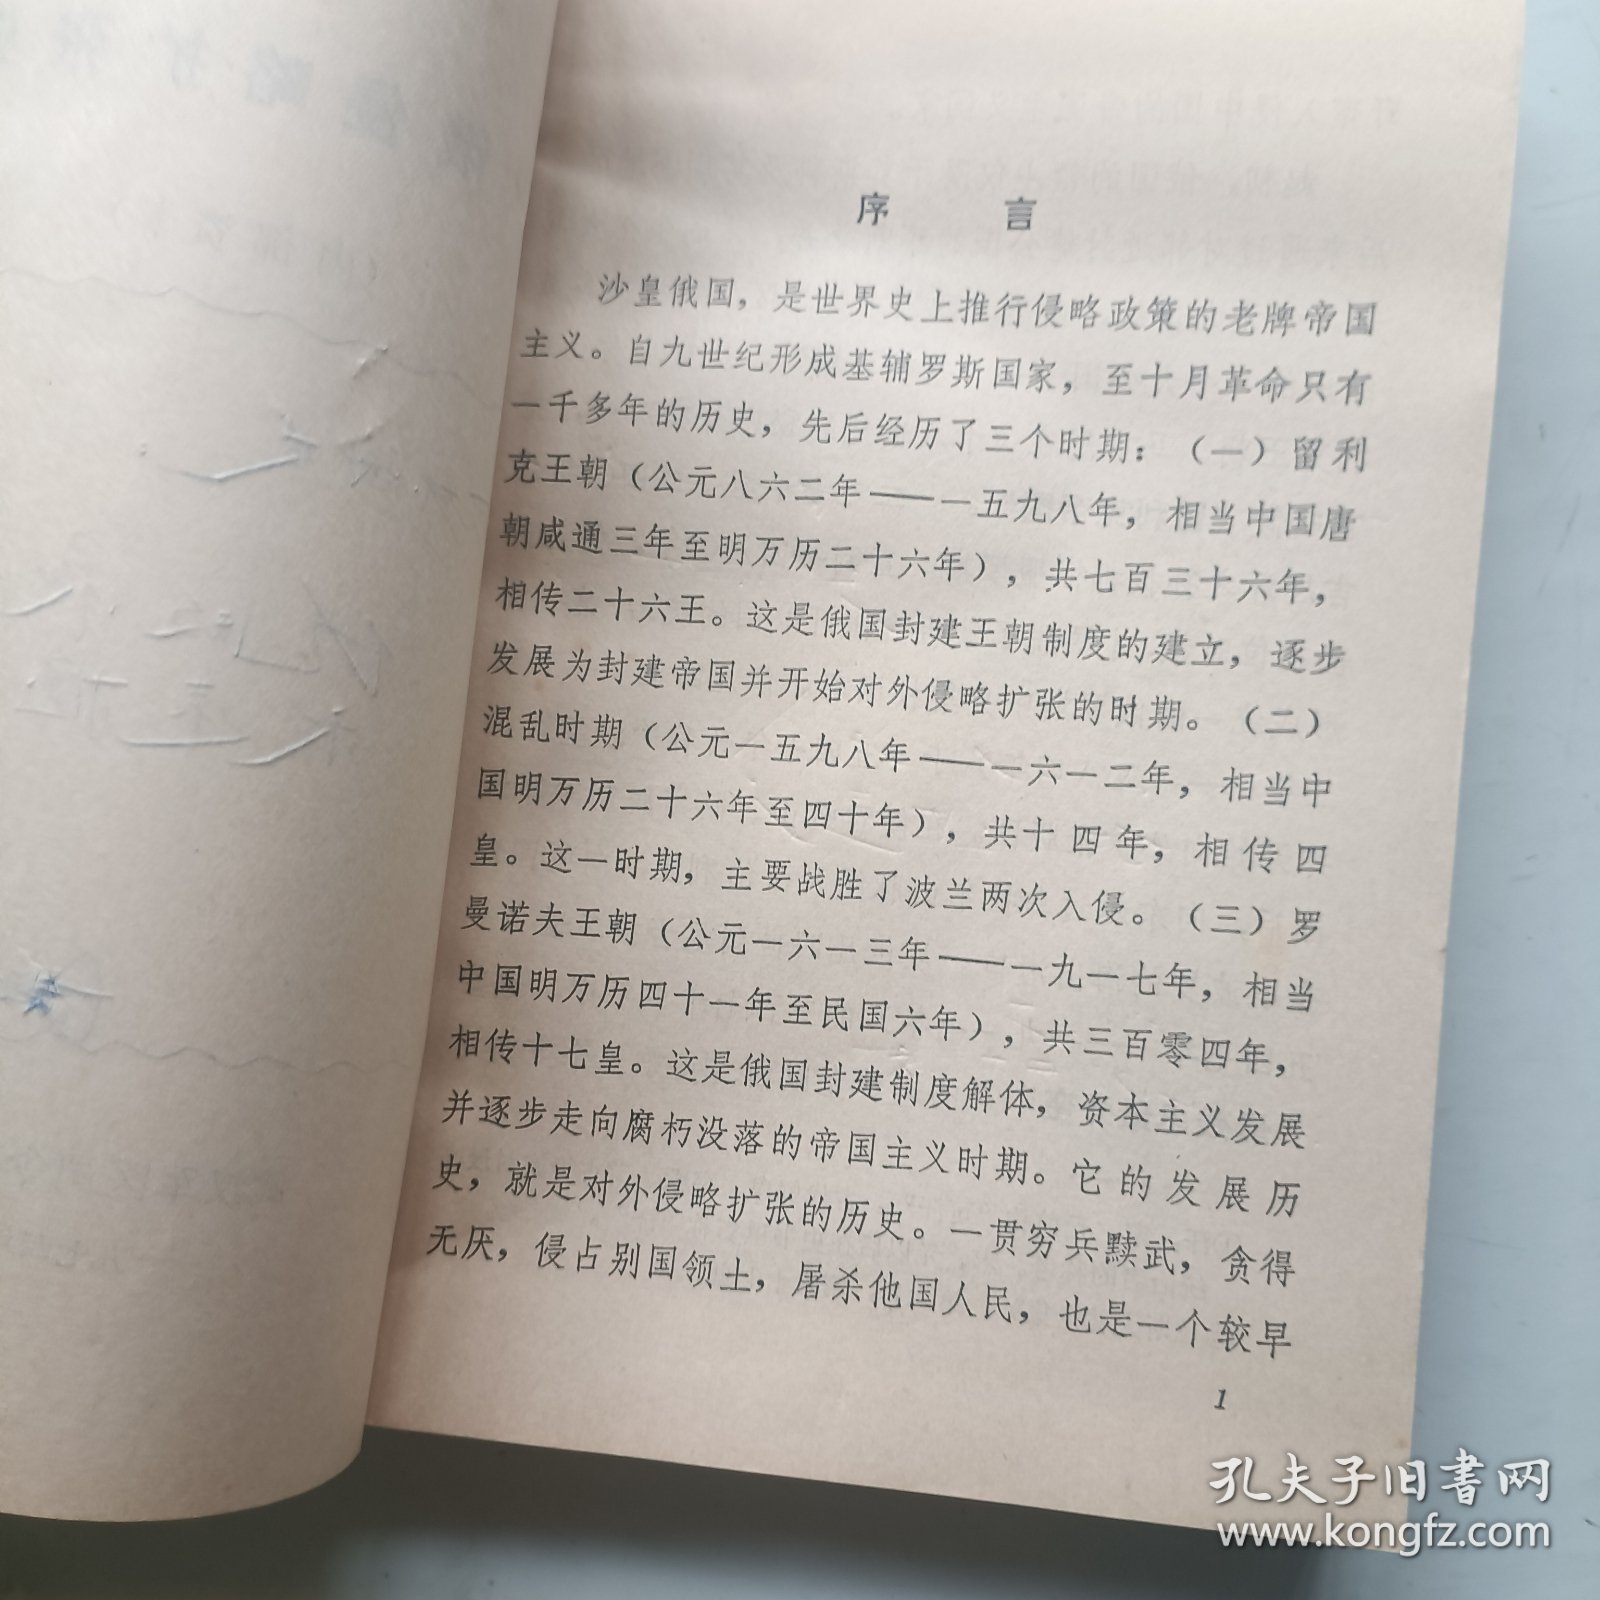 序 言
沙皇俄国，是世界史上推行侵略政策的老牌帝国
主义。自九世纪形成基辅罗斯国家，至十月革命只有
一千多年的历史，先后经历了三个时期：（一）留利
克王朝（公元八六二年——一五九八年，相当中国唐
朝咸通三年至明万历二十六年），共七百三十六年，
相传二十六王。这是俄国封建王朝制度的建立，逐步
发展为封建帝国并开始对外侵略扩张的时期。（二）
混乱时期（公元一五九八年——一六一二年，相当中
国明万历二十六年至四十年），共十四年，相传四
皇。这一时期，主要战胜了波兰两次入侵。（三）罗
曼诺夫王朝（公元一六一三年——一九一七年，相当
中国明万历四十一年至民国六年），共三百零四年，
相传十七皇。这是俄国封建制度解体，资本主义发展
并逐步走向腐朽没落的帝国主义时期。它的发展历
史，就是对外侵略扩张的历史。一贯穷兵黩武，贪得
无厌，侵占别国领土，屠杀他国人民，也是一个较早
1
孔夫子旧书网
www.kongfz.com